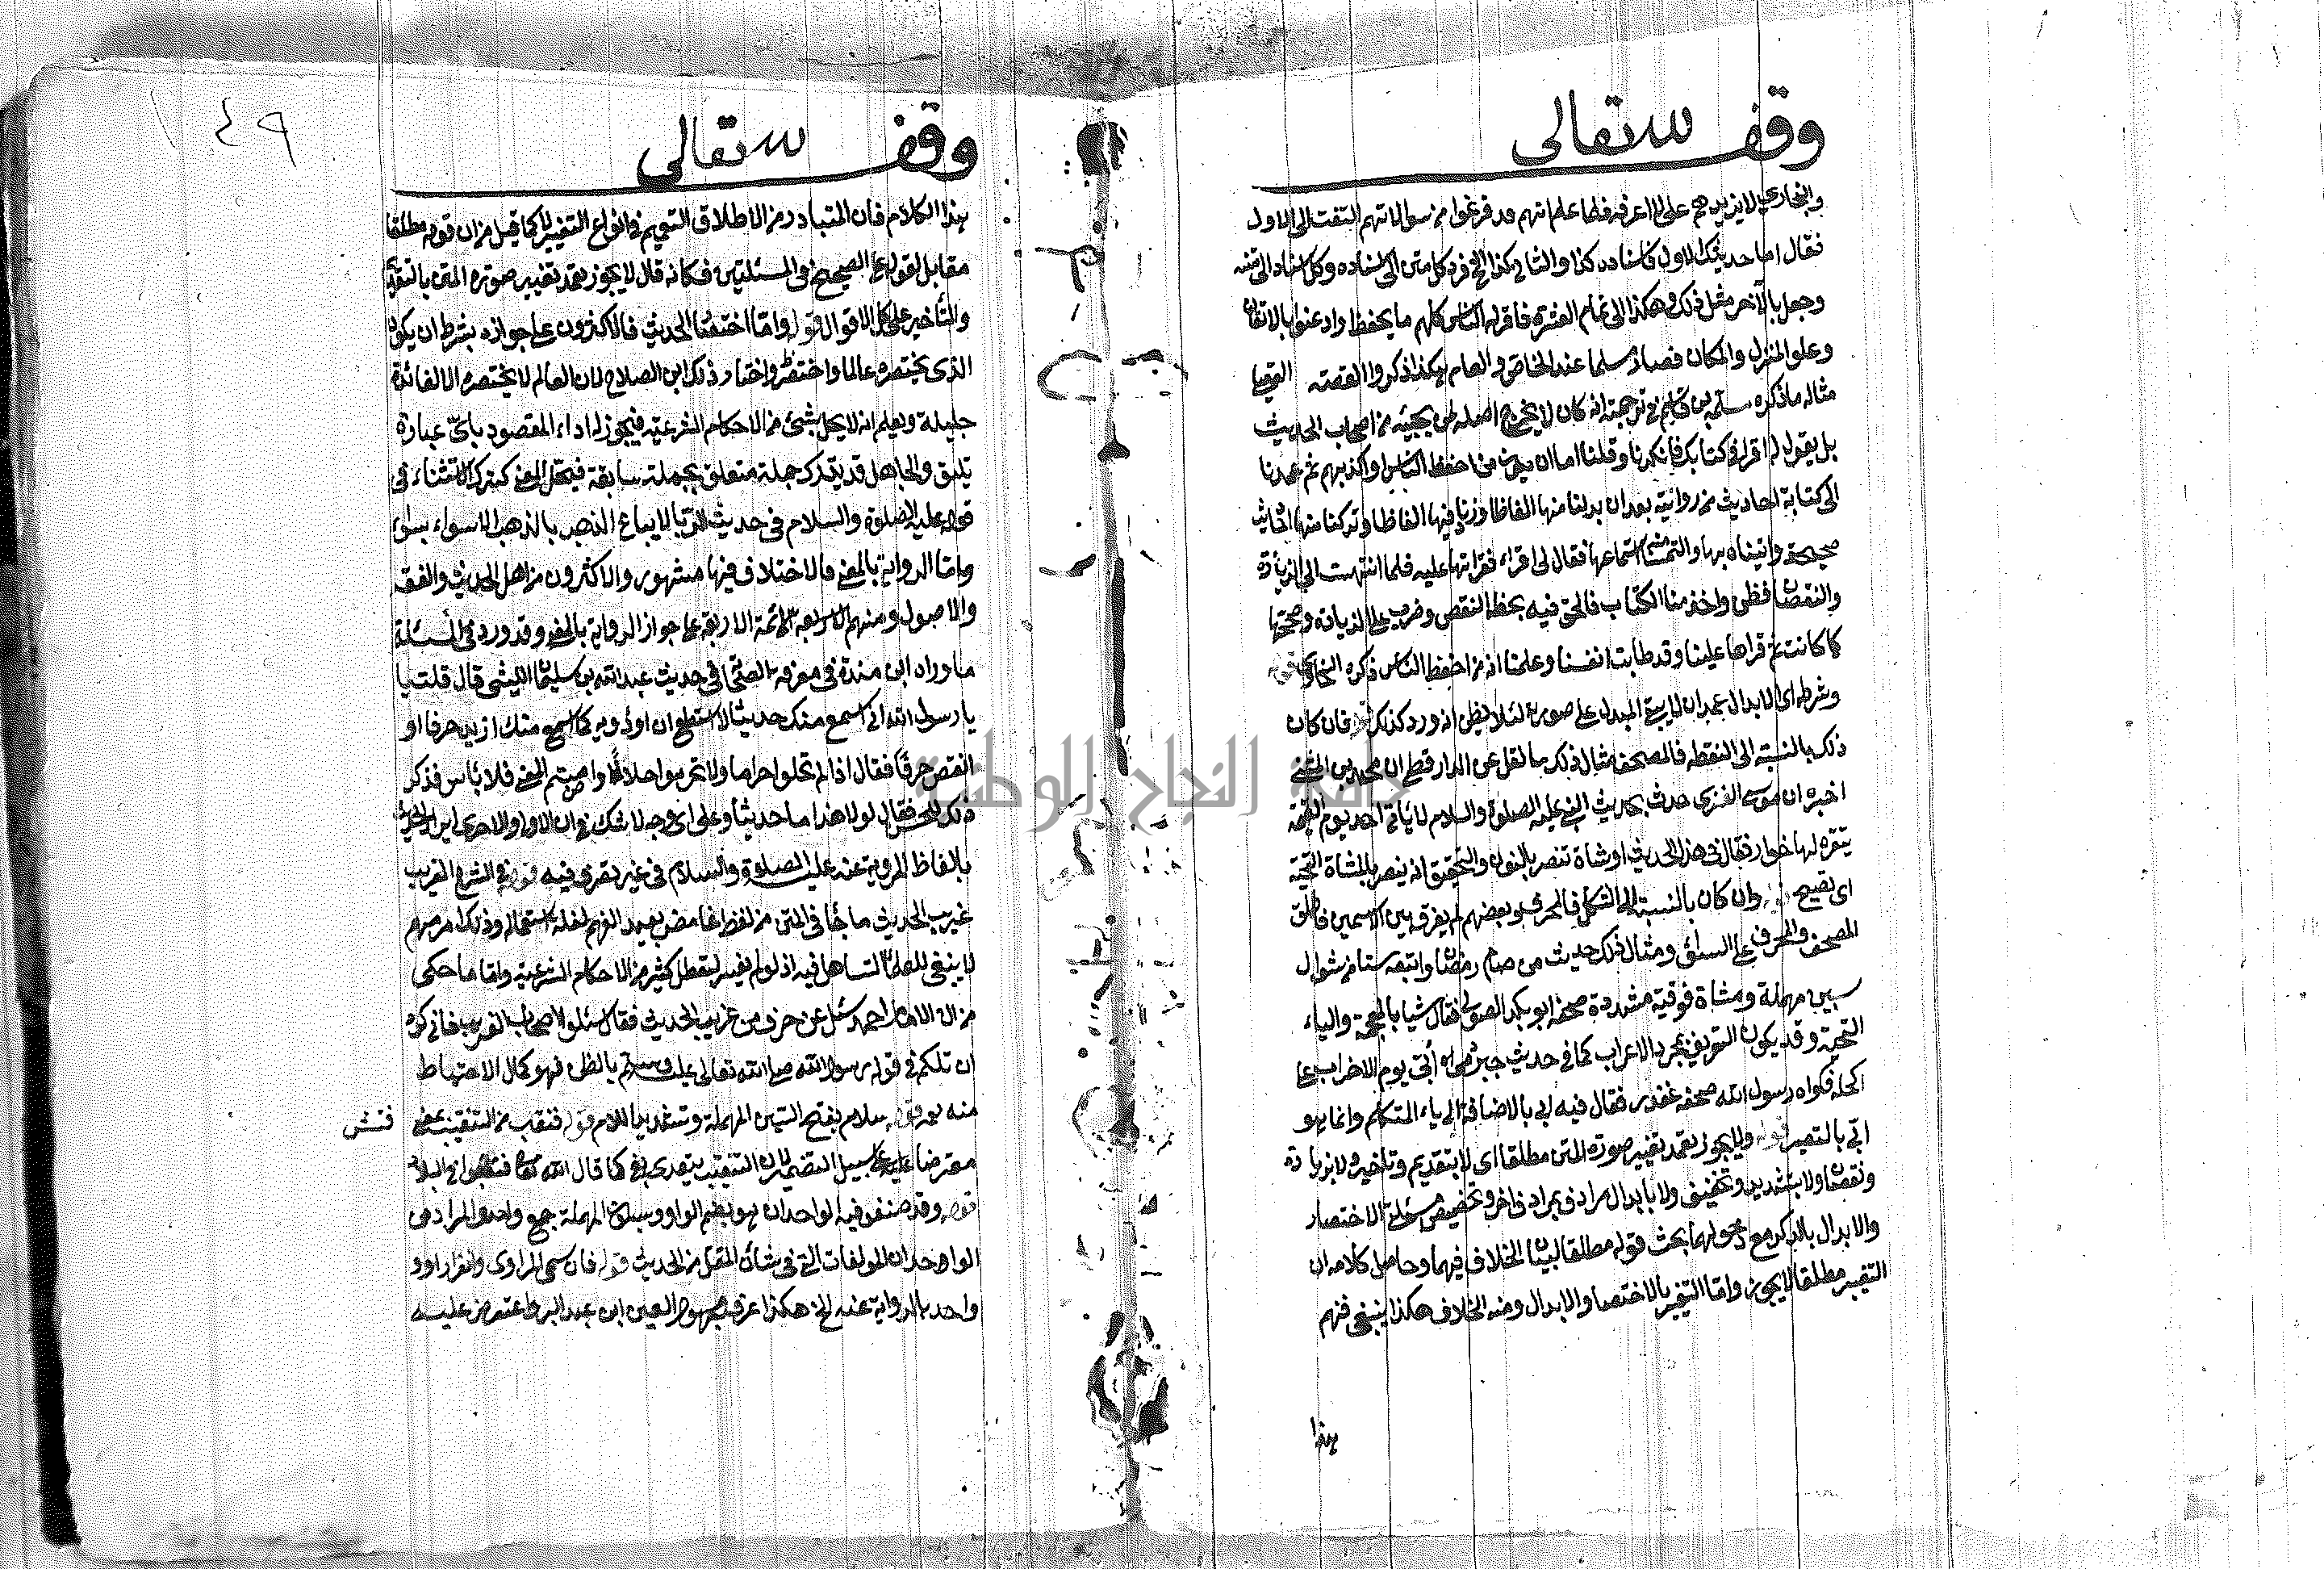 وقف لله تعالى
والبخاري لا يزيدهم على لا اعرفه فلما علم انهم قد فرغوا من سوالاتهم التفت الى الاول
فقال اما حديثك الاول فاسناده كذا والثاني كذا الخ فرد كل متن الى اسناده وكل اسناد الى متنه
وجعل بالآخر مثل ذلك وهكذا الى تمام العشرة فاقر له الناس كلهم ما يحفظ واذعنوا بالاتقان
وعلو المنزل والمكان فصار مسلما عند الخاص والعام هكذا ذكروا القصة
مثاله ما ذكره سلمة بن في ترجمته انه كان لا يخرج اصله لمن يجيئه من اصحاب الحديث
بل يقول له اقرا في كتابك فانكرنا وقلنا اما ان يكون من احفظ الناس او اكذبهم ثم عمدنا
الى كتابة احاديث من روايته بعد ان بدلنا منها الفاظا وزدنا فيها الفاظا وتركنا منها احاديث
صحيحة واتيناه بها والتمسنا منه استماعها فقال لي اقراء فقراتها عليه فلما انتهت الى الزيادة
والنقصان فطن واخذ منا الكتاب فالحق فيه بخطه النقص وضرب على الزيادة وصححها
كما كانت ثم قراها علينا وقد طابت انفسنا وعلمنا انه من احفظ الناس ذكره السخاوي
وشرطه اي الابدال عمدا ان لا يبقى المبدل على صورة لئلا يظن انه ورد كذلك قوله فان كان
ذلك بالنسبة الى النقطة فالمصحف مثال ذلك ما نقل عن الدارقطني ان محمد بن المثنى
اخبره ان موسى العنزي حدث بحديث النبي عليه الصلوة والسلام لا ياتي احد يوم القيمة
بقرة لها خوار فقال في هذا الحديث او شاة تنعر بالنون والتحقيق انه تيعر بالمثناة التحتية
اي تصيح قوله وان كان بالنسبة الى الشكل فالمحرف وبعضهم لم يفرق بين الاسمين فاطلق
المصحف والمحرف على السائق ومثال ذلك حديث من صام رمضان واتبعه ستا من شوال
بسين مهملة ومثناة فوقية مشددة صحفه ابو بكر الصولي فقال شيا بالمعجمة والياء
التحتية وقد يكون التحريف بمجرد الاعراب كما في حديث جابر رمي أبي يوم الاحزاب على
اكحله فكواه رسول الله صحفه غندر فقال فيه ابي بالاضافة الى ياء المتكلم وانما هو
ابي بالتصغير قوله ولا يجوز تعمد تغيير صورة المتن مطلقا اي لا بتقديم وتاخير ولا بزيادة
ونقصان ولا بتشديد وتخفيف ولا بابدال مرادف بمرادف اخر وتخصيص مسئلة الاختصار
والابدال بالذكر مع دخولهما بحث قوله مطلقا لبيان الخلاف فيهما وحاصل كلامه ان
التغيير مطلقا لا يجوز واما التغيير بالاختصار والابدال ومنه الخلاف هكذا ينبغي فهم
هذا
وقف لله تعالى
١٤٩
هذا الكلام فان المتبادر من الاطلاق التعميم في انواع التغيير لا كما قيل من ان قوله مطلقا
مقابل لقوله على الصحيح في المسئلتين فكانه قال لا يجوز تعمد تغيير صورة المتن بالتقديم
والتأخير على كل الاقوال قوله واما اختصار الحديث فالاكثرون على جوازه بشرط ان يكون
الذي يختصره عالما واختصره واختار ذلك ابن الصلاح لان العالم لا يختصره الا لفائدة
جليلة ويعلم انه لا يخل بشئ من الاحكام الشرعية فيجوز له اداء المقصود باي عبارة
تليق والجاهل قد يترك جملة متعلق بجملة سابقة فيختل المعنى كترك الاستثناء في
قوله عليه الصلوة والسلام في حديث الربا لا يباع الذهب بالذهب الا سواء بسواء
واما الرواية بالمعنى فالاختلاف فيها مشهور والاكثرون من اهل الحديث والفقه
والاصول ومنهم الائمة الاربعة على جواز الرواية بالمعنى وقد ورد في المسئلة
ما رواه ابن مندة في معرفة الصحابة في حديث عبد الله بن سليمان الليثي قال قلت يا
يا رسول الله اني اسمع منك حديثا لا استطيع ان اؤديه كما اسمع منك ازيد حرفا او
انقص حرفا فقال اذا لم تحلوا حراما ولا تحرموا حلالا واصبتم المعنى فلا بأس فذكر
ذلك للحسن فقال لولا هذا ما حدثنا وعلى اي وجه لا شك في ان الاولى والاحرى ايراد الحديث
بالفاظه المروية عنه عليه الصلوة والسلام في غير تصرف فيه قوله في الشرح الغريب
غريب الحديث ما جاء في المتن من لفظ غامض بعيد الفهم لقلة استعماله وذلك امر مهم
لا ينبغي للعلماء التساهل فيه اذ لو لم يفسر لتعطل كثير من الاحكام الشرعية واما ما حكي
من ان الامام احمد سئل عن حرف من غريب الحديث فقال سلوا اصحاب الغريب فاني اكره
ان تكلم في قول رسول الله صلى الله تعالى عليه وسلم بالظن فهو كمال الاحتياط
منه قوله سلام بفتح السين المهملة وتشديد اللام قوله فنقب من التنقيب بمعنى فتش
معترضا عليه على سبيل التضمين لان التنقيب يتعدى بفي كما قال الله تعالى فنقبوا في البلاد
قوله وقد صنفوا فيه الوحدان هو بضم الواو وسكون المهملة جمع واحد والمراد من
الوحدان المولفات التي في شأن المقل من الحديث قوله فان سمي الراوي وانفرد او و
واحد بالرواية عنه الخ هكذا عرف مجهول العين ابن عبد البر واعترض عليه
جامعة النجاح الوطنية